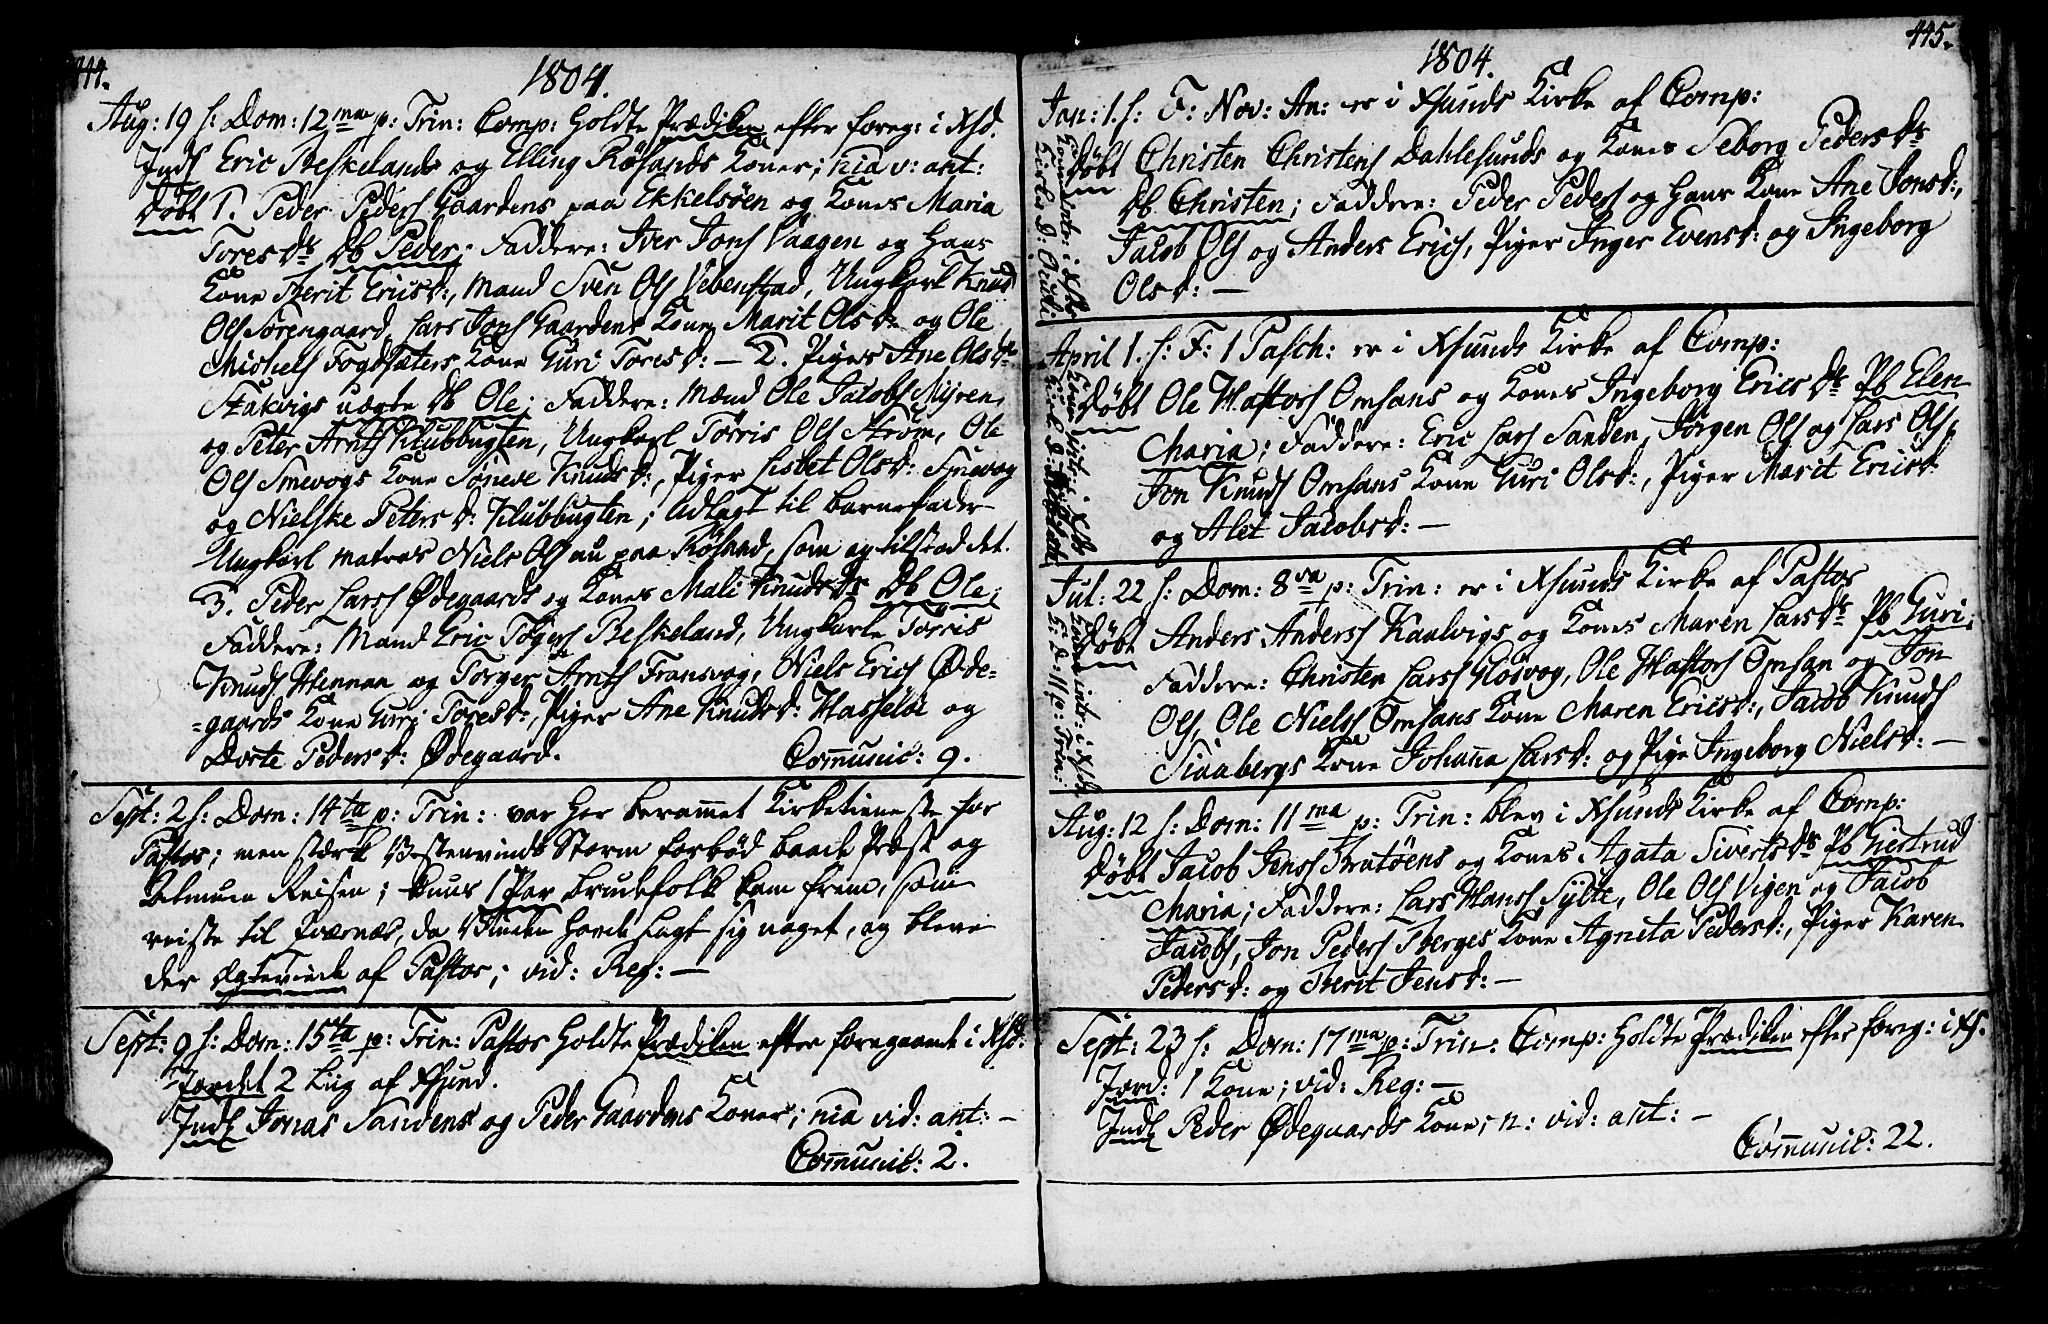 444.
1804.
Aug: 19 s: Dom: 12 ma p: Trin: Comp: holdte Prædiken efter foreg: i Xsd.
Indl Eric Beskelands og Elling Rösands Koner; nia v: ant:
Döbt 1. Peder Peders Gaardens paa Ekkelsöen og Kones Maria
Toresdr Db Peder; Faddere: Iver Jons Vaagen og hans
Kone Berit Ericsd:, Mand Sven Ols Vebenstad, Ungkarl Knud
Ols Sörengaard, Lars Jons Gaardens Kone Marit Olsd: og Ole
Michels Fogdsæters Kone Guri Toresd: — 2. Piges Ane Olsdr
Stakvigs uægte Db Ole; Faddere: Mænd Ole Jacobs Myren
og Peter Arnts Klubbugten, Ungkarl Törris Ols Ström, Ole
Ols Smevogs Kone Söneve Knudsd:, Piger Lisbet Olsd: Smevog
og Nielske Petersd: Klubbugten; Udlagt til Barnefader
Ungkarl matros Niels Ols nu paa Rösand, som og tilstod det.
3. Peder Larss Ödegaards og Kones Mali Knudsdr Db Ole;
Faddere: Mand Eric Tögers Beskeland, Ungkarle Törris
Knuds Hennan og Torger Arnts Fransvog, Niels Erics Öde-
-gaards Kone Guri Toresd:, Piger Ane Knudsd: Hasselöe og
Dorte Pedersd: Ödegaard. Communic: 9.
Sept: 2 s: Dom: 14 ta p: Trin: var her berammet Kirketieneste for
Pastor; men stærk Vestenvinds Storm forbød baade Præst og
Almuen Reisen; kuns 1 Par Brudefolk kom frem, som
reiste til Qværnæs, da Vinden havde lagt sig noget, og bleve
der Ægteviede af Pastor; vid: Reg: —
Sept: 9 s: Dom: 15 ta p: Trin: Pastor holdte Prædiken efter foregaaende i Xsd:
Jordet 2 Liig af Xsund.
Indl Jonas Sandens og Peder Gaardens Koner; nia vid: ant: —
Communic: 2.
445.
1804.
Jan: 1. s: F: Nov: An: er i Xsunds Kirke af Comp:
Döbt Christen Christens Dahlesunds og Kones Seborg Pedersdr
Db Christen; Faddere: Peder Peders og hans Kone Ane Jonsd:,
Jacob Ols og Anders Erics, Piger Inger Evensd: og Ingeborg
Olsd: —
April 1. s: F: 1 Pasch: er i Xsunds Kirke af Comp:
Döbt Ole Hastors Omsans og Kones Ingeborg Ericsdr Pb Elen
Maria; Faddere: Eric Lars Sanden, Jörgen Ols og Lars Ols,
Jon Knuds Omsans Kone Guri Olsd:, Piger Marit Ericsd:
og Alet Jacobsd: —
Jul: 22 s: Dom: 8 va p: Trin: er i Xsunds Kirke af Pastor
Döbt Anders Anderss Kaalvigs og Kones Maren Larsdr Pb Guri;
Faddere: Christen Larss Gösvog, Ole Hastors Omsan og Jon
Ols, Ole Nielss Omsans Kone Maren Ericsd:, Jacob Knuds
Skaabergs Kone Johanna Larsd: og Pige Ingeborg Nielsd: —
Aug: 12 s: Dom: 11 ma p: Trin: blev i Xsunds Kirke af Comp:
Döbt Jacob Jenss Brutöens og Kones Agata Sivertsdr Pb Giertrud
Maria; Faddere: Lars Hanss Sylte, Ole Ols Vigen og Jacob
Jacobs, Jon Peders Berges Kone Agneta Pedersd:, Piger Karen
Pedersd: og Berit Jensd: —
Sept: 23 s: Dom: 17 ma p: Trin: Comp: holdte Prædiken efter foreg: i Xs.
Jord: 1 Kone; vid: Reg: —
Indl Peder Ödegaards Kone; n: vid: ant: —
Communic: 22.